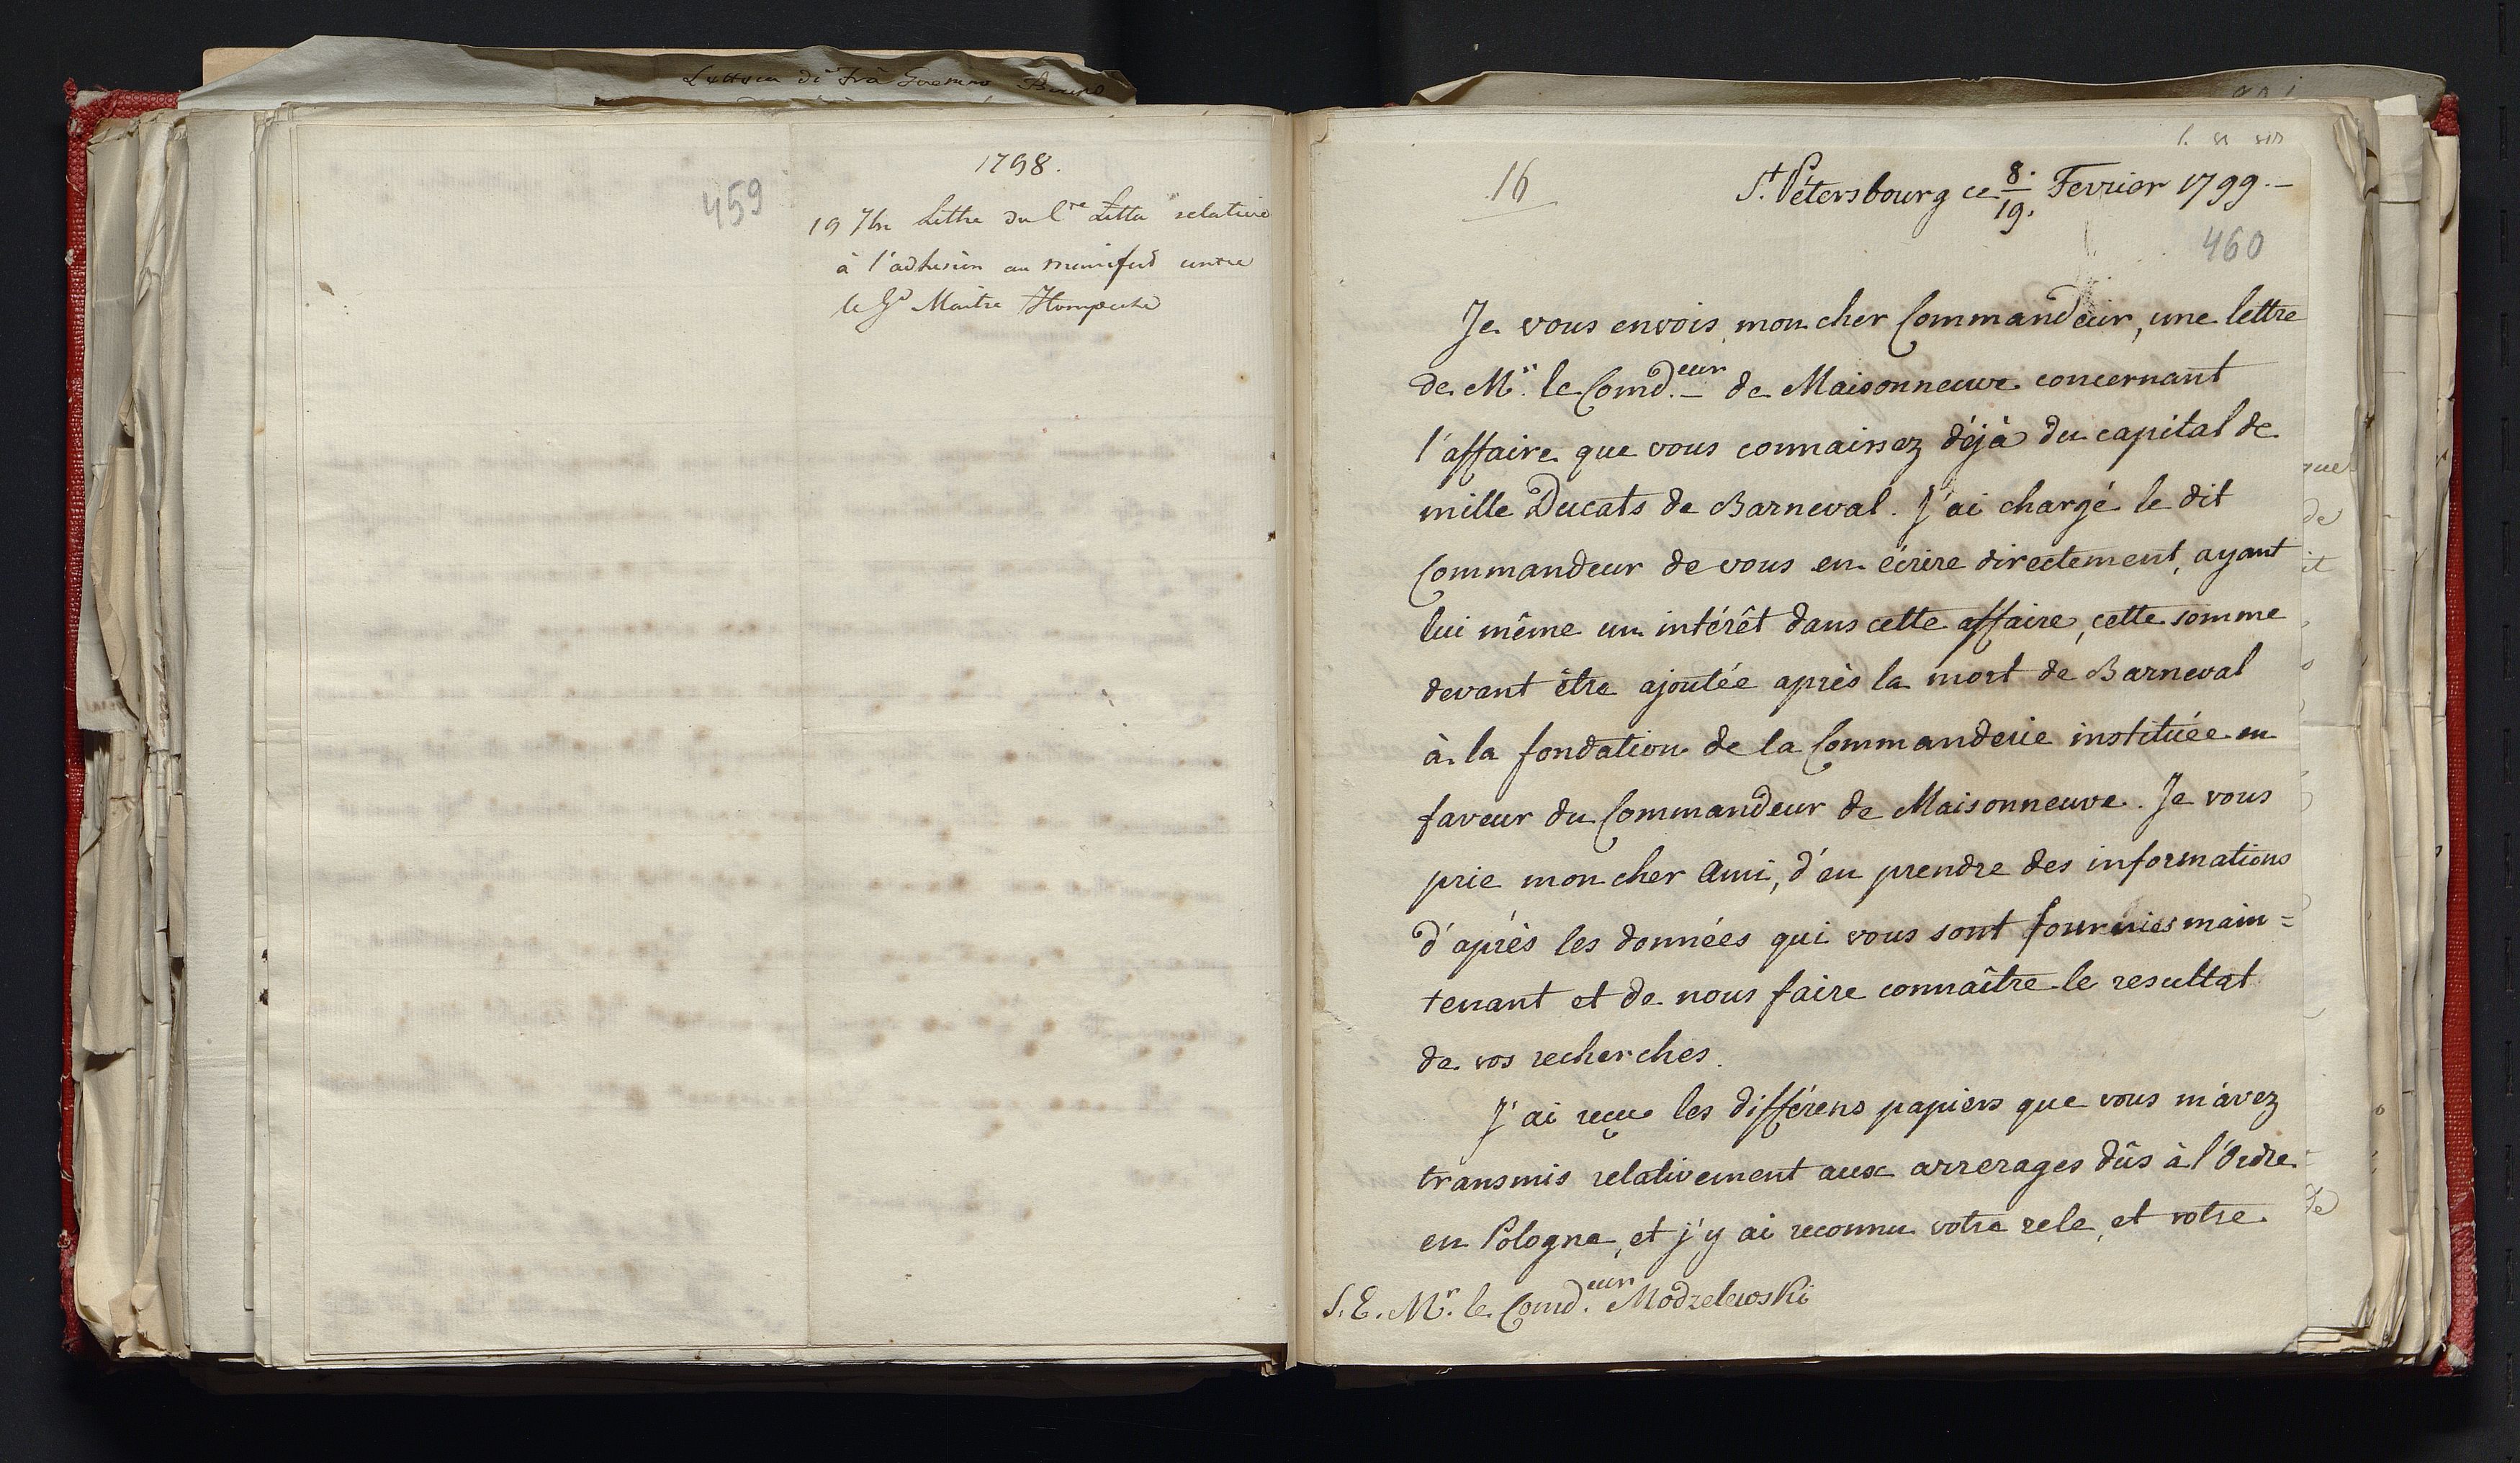 1798.
459
19 7bre Lettre du Cte Litta relative
à l'adhésion au manifest contre
le Gd Maitre Hompesche
16
St. Pétersbourg ce 8./19. Fevrier 1799.-
460
Je vous envois, mon cher Commandeur, une lettre
de Mr. le Comd.eur de Maisonneuve concernant
l'affaire que vous connaissez déjà du capital de
mille Ducats de Barneval. J'ai chargé le dit
Commandeur de vous en écrire directement, ayant
lui même un intérêt dans cette affaire, cette somme
devant être ajoutée après la mort de Barneval
à la fondation de la Commanderie instituée en
faveur du Commandeur de Maisonneuve. Je vous
prie mon cher Ami, d'en prendre des informations
d'après les données qui vous sont fournies main=
tenant et de nous faire connaître le resultat
de vos recherches.
J'ai reçu les différens papiers que vous m'avez
transmis relativement aux arrerages dûs à l'Ordre
en Pologne, et j'y ai reconnu votre zele, et votre
S. E. Mr. le Comd.eur Modzelewski